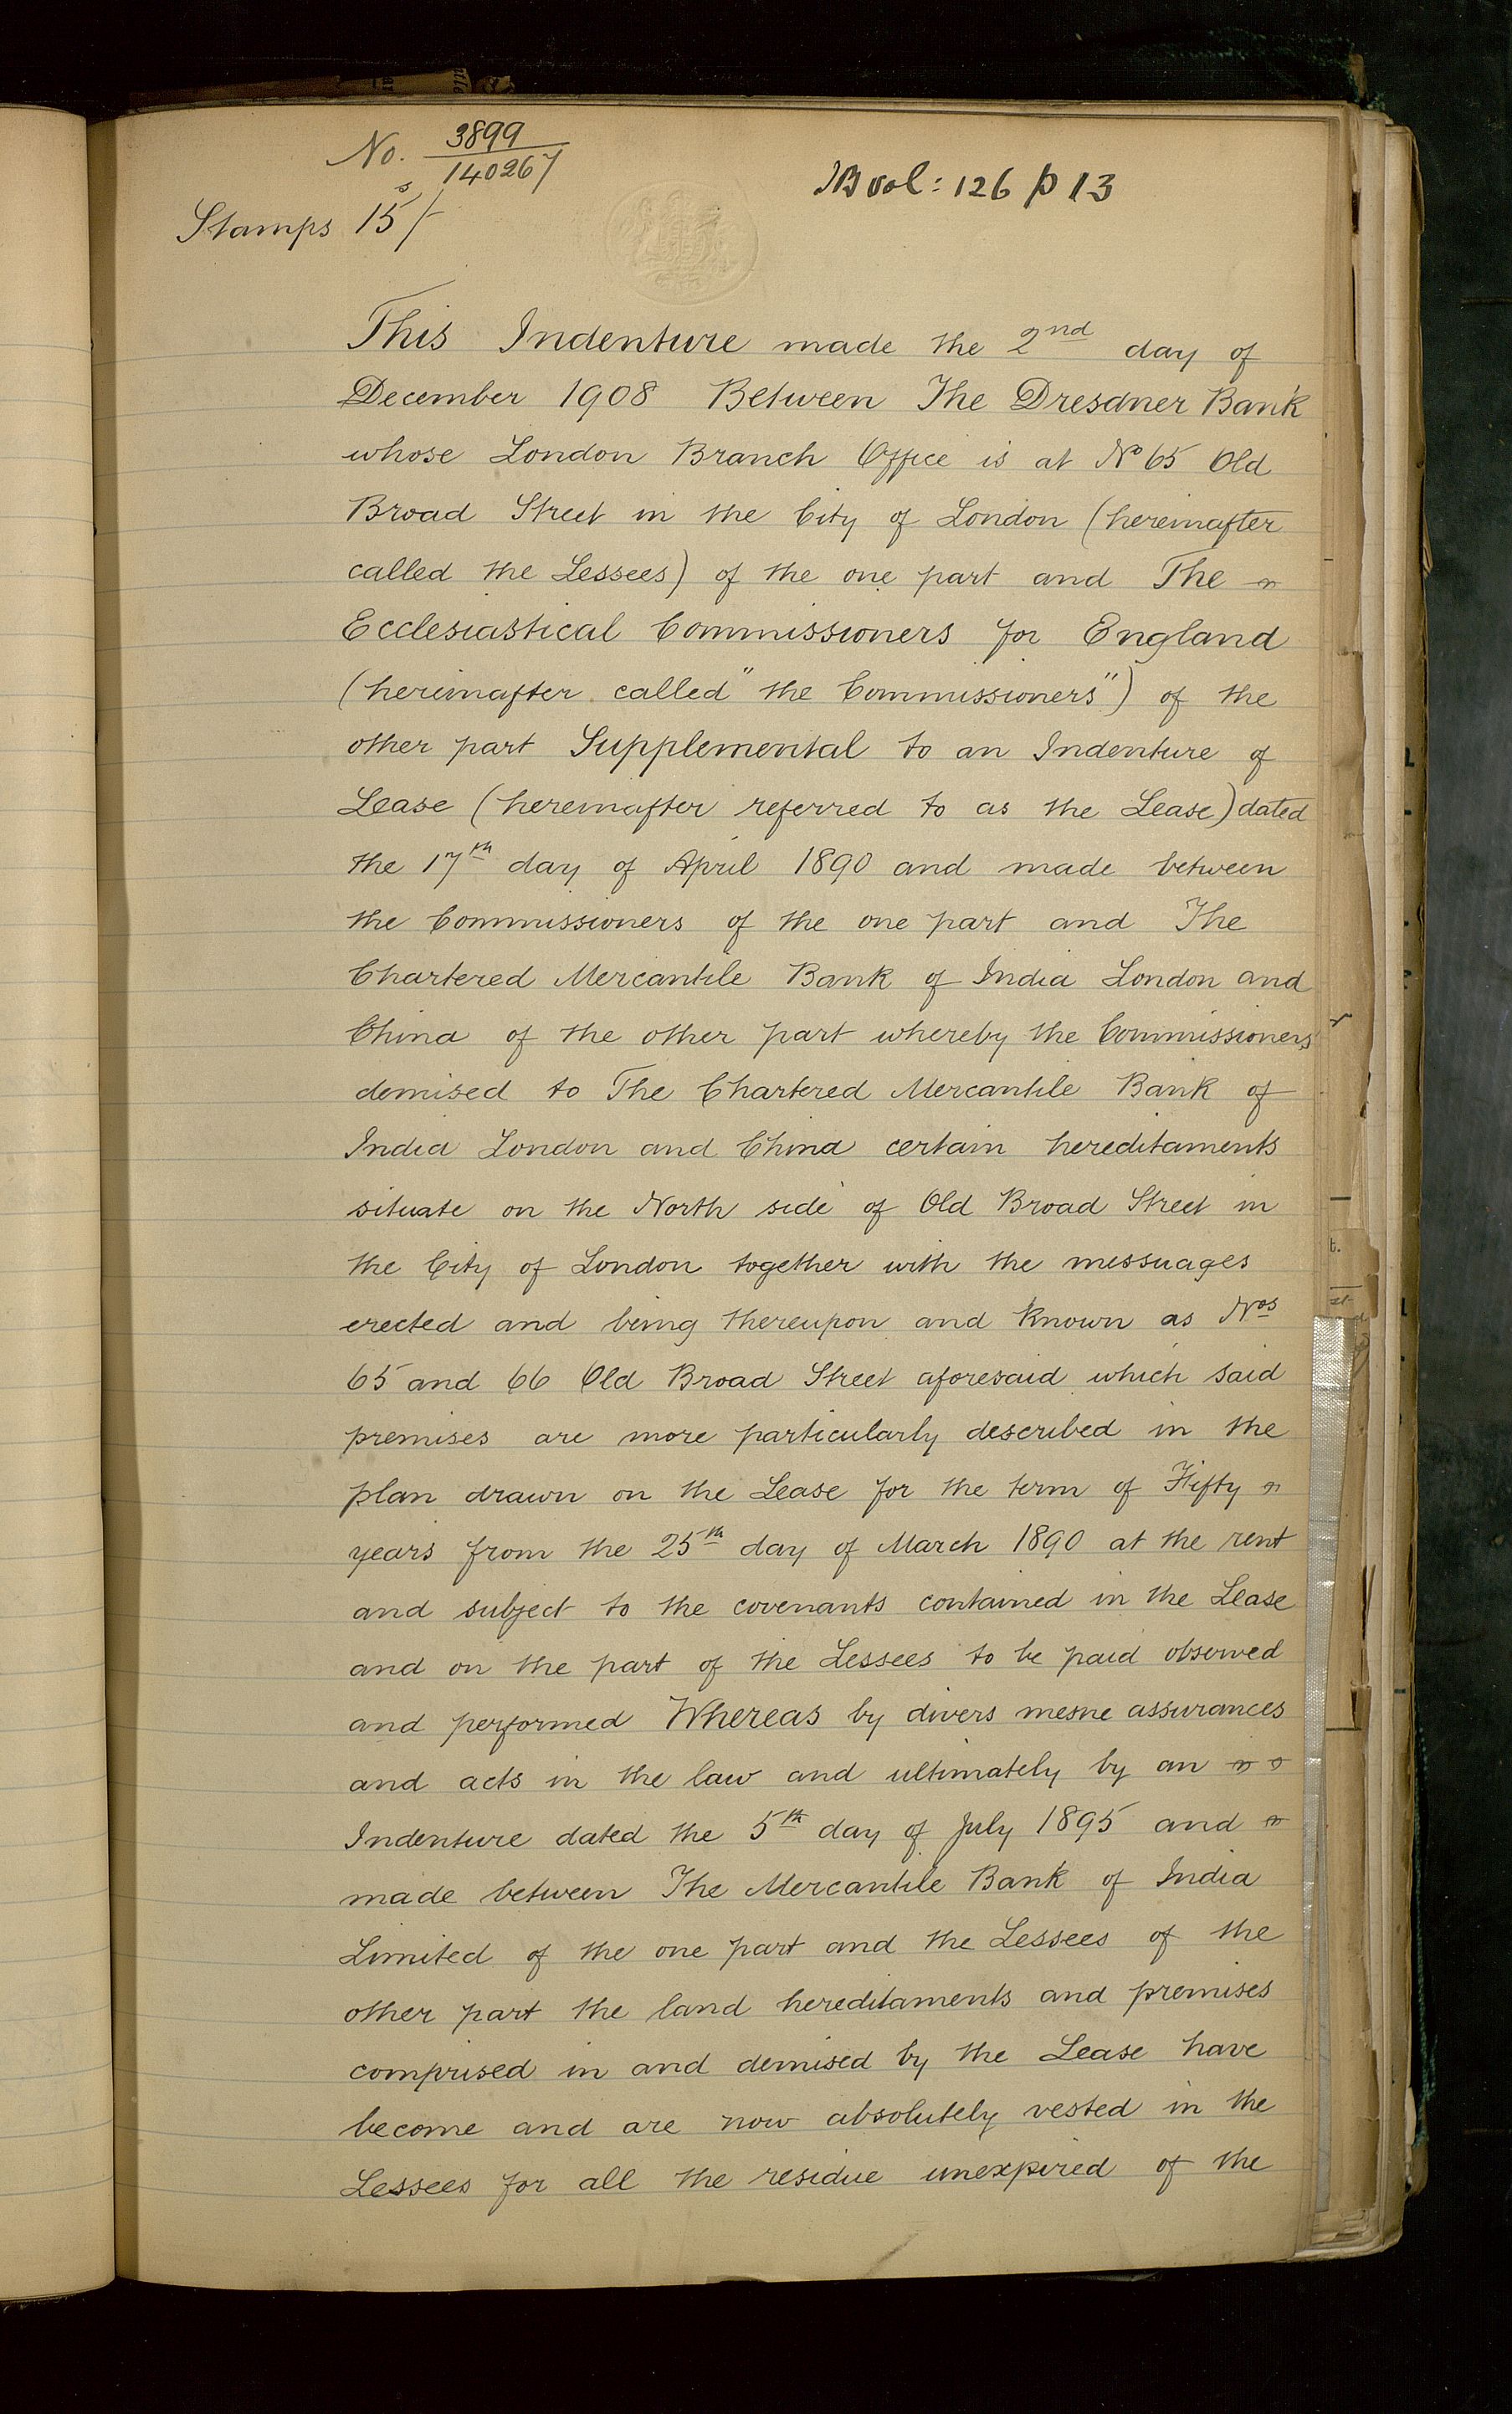 No. 3899
140267
Stamps 15s/-
vol: 126 p 13
This Indenture made the 2nd day of
December 1908 Between The Dresdner Bank
whose London Branch Office is at No 65 Old
Broad Street in the City of London (hereinafter
called the Lessees) of the one part and The
Ecclesiastical Commissioners for England
(hereinafter called "the Commissioners") of the
other part Supplemental to an Indenture of
Lease (hereinafter referred to as the Lease) dated
the 17th day of April 1890 and made between
the Commissioners of the one part and The
Chartered Mercantile Bank of India London and
China of the other part whereby the Commissioners
demised to The Chartered Mercantile Bank of
India London and China certain hereditaments
situate on the North side of Old Broad Street in
the City of London together with the messuages
erected and being thereupon and known as Nos
65 and 66 Old Broad Street aforesaid which said
premises are more particularly described in the
plan drawn on the Lease for the term of Fifty
years from the 25th day of March 1890 at the rent
and subject to the covenants contained in the Lease
and on the part of the Lessees to be paid observed
and performed Whereas by divers mesne assurances
and acts in the law and ultimately by an
Indenture dated the 5th day of July 1895 and
made between The Mercantile Bank of India
Limited of the one part and the Lessees of the
other part the land hereditaments and premises
comprised in and demised by the Lease have
become and are now absolutely vested in the
Lessees for all the residue unexpired of the